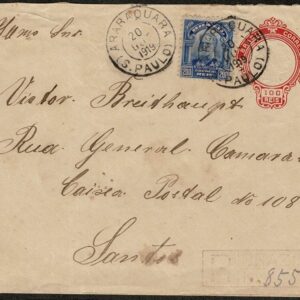 Illmo Snr.
ARARAQUARA
20
1919
(S. PAULO)
200
100
REIS
Victor Breithaupt
Rua General Camara
Caixa Postal No 108
Santos
855